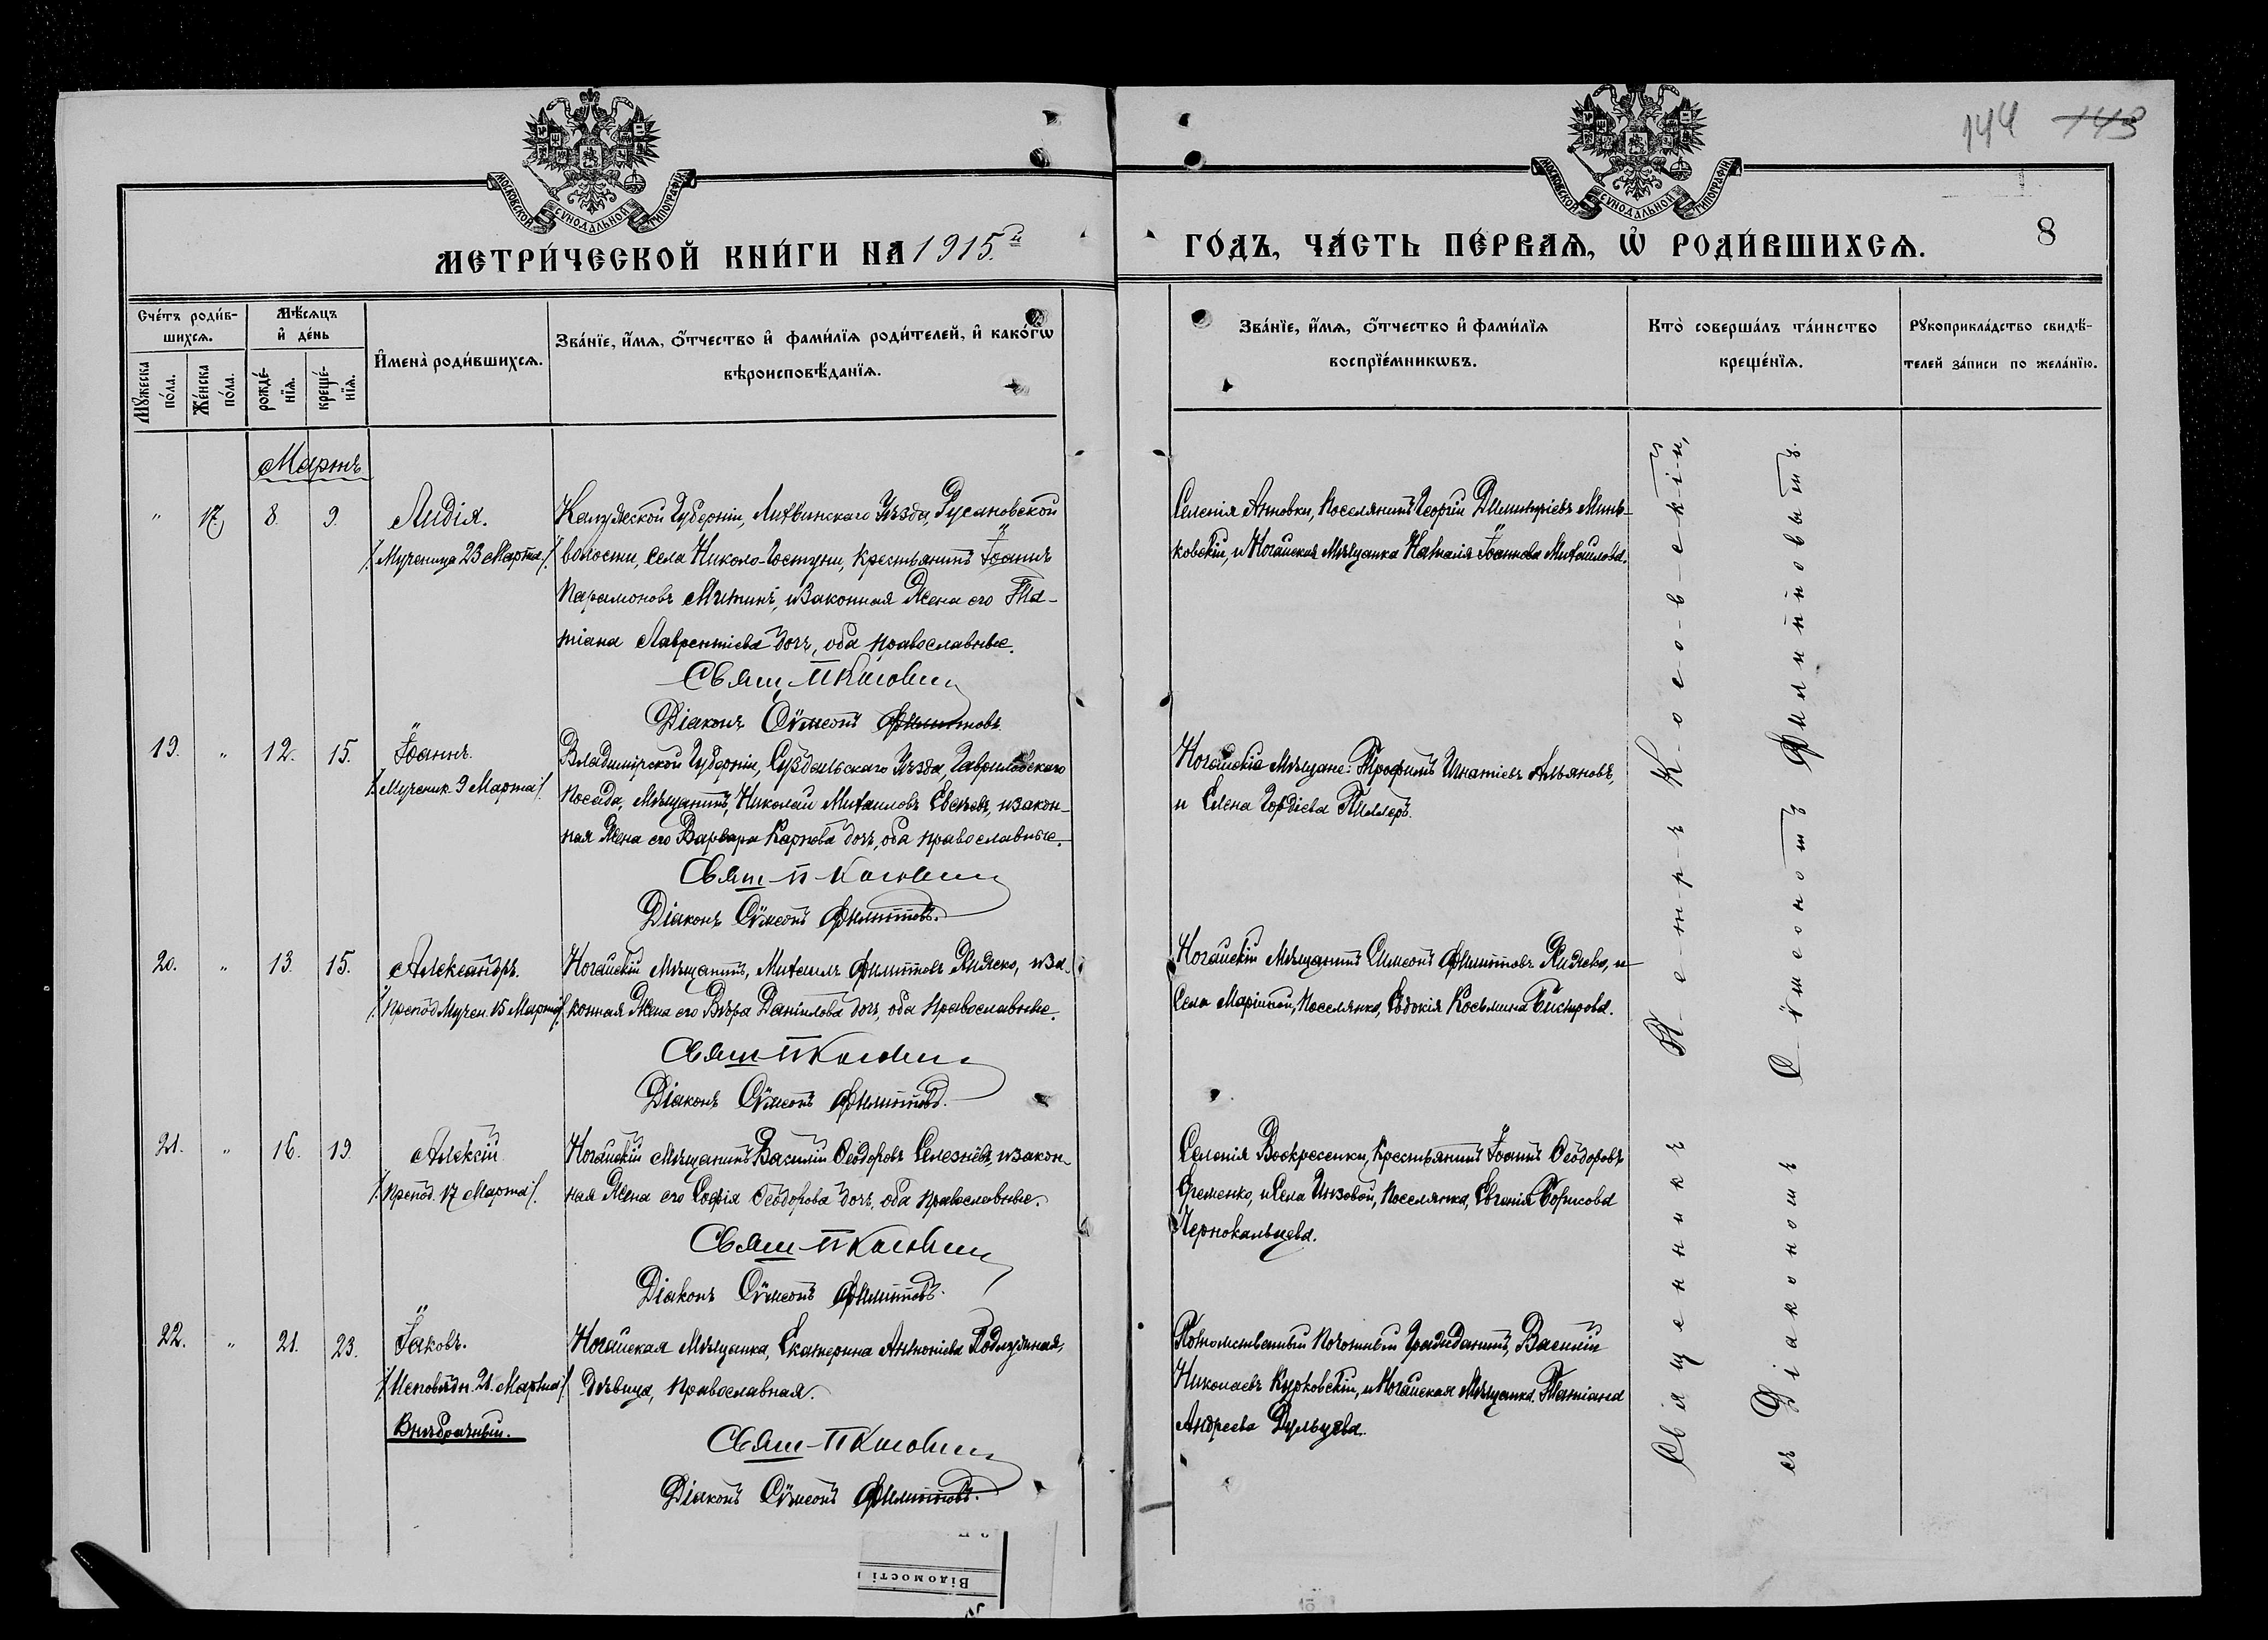 144 143
МОСКОВСКОЙ СѴНОДАЛЬНОЙ ТИПОГРАФІИ
МОСКОВСКОЙ СѴНОДАЛЬНОЙ ТИПОГРАФІИ
МЕТРИ́ЧЕСКОЙ КНИ́ГИ НА 1915.й
ГО́ДЪ, ЧА́СТЬ ПЕ́РВАѦ, Ѡ҆ РОДИ́ВШИХСѦ.
8
Сче́тъ роди́в-
шихсѧ.
Мѣ́сѧцъ
и҆ де́нь
Мꙋ́жеска
по́ла.
Же́нска
по́ла.
рожде́-
нїѧ.
креще́-
нїѧ.
И҆мена̀ роди́вшихсѧ.
Зва́нїе, и҆́мѧ, ѻ҆́тчество и҆ фами́лїѧ роди́телей, и҆ како́гѡ
вѣроисповѣ́данїѧ.
Зва́нїе, и҆́мѧ, ѻ҆́тчество и҆ фами́лїѧ
воспрїе́мникѡвъ.
Кто̀ соверша́лъ та́инство
креще́нїѧ.
Рꙋкоприкла́дство свидѣ́-
телей за́писи по жела́нїю.
Мартъ
" 17 8. 9. Лидія.
/Мученица 23 Марта/.
Калужской Губерніи, Лихвинскаго Уѣзда, Русановской
волости, села Николо-Гостуни, крестьянинъ Іоаннъ
Парамоновъ Митинъ, и законная жена его Та-
тіана Лаврентіева дочь, оба православные.
Свящ. П Косовск
Діаконъ Сѵмеонъ Филипповъ.
Селенія Анновки, поселянинъ Георгій Димитріевъ Минь-
ковскій, и Ногайская мѣщанка Наталія Іоаннова Михайлова.
19. " 12. 15. Іоаннъ.
/Мученик. 9 Марта/.
Владимірской Губерніи, Суздальскаго Уѣзда, Гавриловскаго
Посада, мѣщанинъ, Николай Михаиловъ, и закон-
ная жена его Варвара Карпова дочь, оба православные.
Свящ. П Косовск
Діаконъ Сѵмеонъ Филипповъ.
Ногайскіе мѣщане: Трофимъ Игнатіевъ Альяновъ,
и Елена Гордіева Тиллеръ.
20. " 13. 15. Александръ.
/Препод Мучен. 15 Марта/.
Ногайскій мѣщанинъ, Михаилъ Филипповъ, и за-
конная жена его Вѣра Даніилова дочь, оба православные.
Свящ. П Косовск
Діаконъ Сѵмеонъ Филипповъ.
Ногайскій мѣщанинъ Симеонъ Филипповъ, и
села Маріиной, поселянка, Евдокія Косьмина Бистрова.
21. " 16. 19. Алексій
/Препод. 17 Марта/.
Ногайскій мѣщанинъ Василій Ѳеодоровъ Селезнёвъ, и закон-
ная жена его Софія Ѳеодорова дочь, оба православные.
Свящ. П Косовск
Діаконъ Сѵмеонъ Филипповъ.
Селенія Воскресенки, крестьянинъ Іоаннъ Ѳеодоровъ
Еременко, и села Инзовой, поселянка, Евгенія Борисова
Чернокальцева.
22. " 21. 23. Іаковъ.
/Исповѣдн. 21. Марта/.
Внѣбрачный.
Ногайская мѣщанка, Екатерина Антоніева Подлузиная,
дѣвица, православная.
Свящ. П Косовск
Діаконъ Сѵмеонъ Филипповъ.
Потомственный Почотный Гражданинъ, Василій
Николаевъ Курковскій, и Ногайская мѣщанка Татіана
Андреева Дульцева.
Священникъ Петръ Косовскій,
съ Діакономъ Сѵмеономъ Филипповымъ.
Відомості